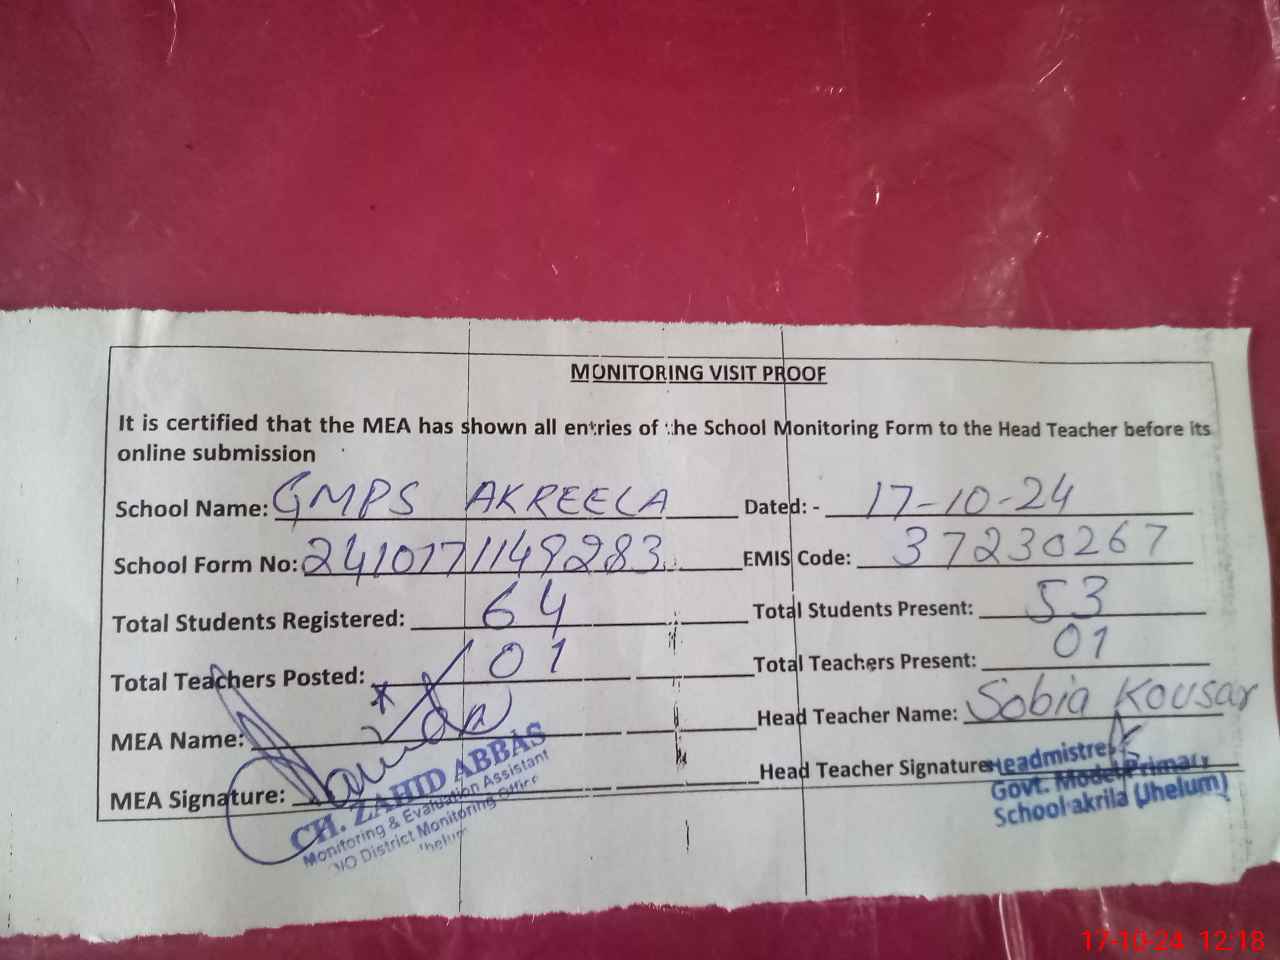 MONITORING VISIT PROOF
It is certified that the MEA has shown all entries of the School Monitoring Form to the Head Teacher before its
online submission
School Name: GMPS AKREELA Dated: - 17-10-24
School Form No: 2410171149283 EMIS Code: 37230267
Total Students Registered: 64 Total Students Present: 53
Total Teachers Posted: 01 Total Teachers Present: 01
MEA Name: Head Teacher Name: Sobia Kousar
MEA Signature: Head Teacher Signature
CH. ZAHID ABBAS
Monitoring & Evaluation Assistant
District Monitoring Office
Headmistres
Govt. Model Primary
School akrila (Jhelum)
17-10-24 12:18